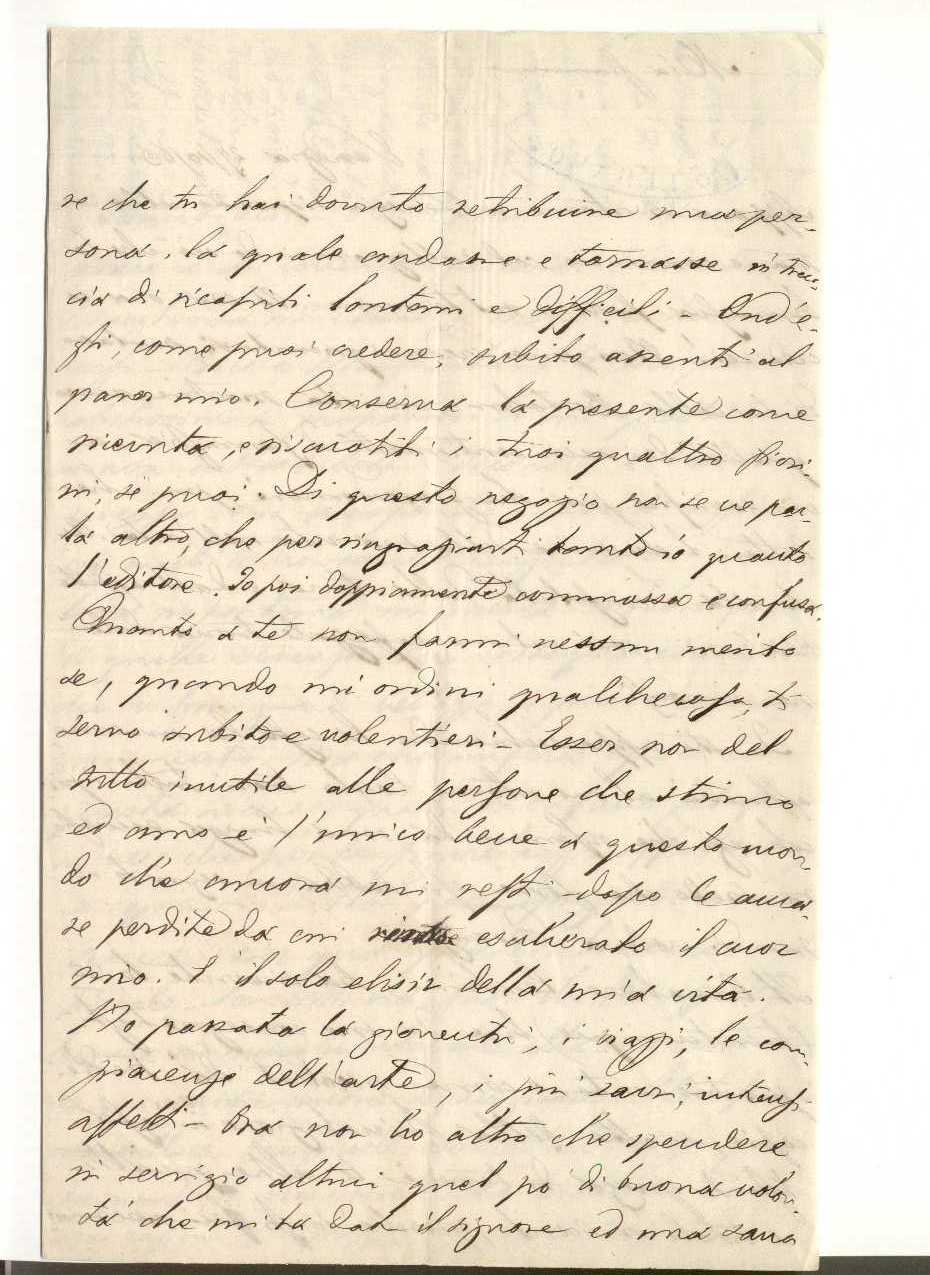 se che tu hai dovuto retribuire una per-
sona, la quale andasse e tornasse in trac-
cia di ricapiti lontani e difficili - Ond'e-
gli, come puoi credere, subito assentì al
parer mio. Conserva la presente come
ricevuta, e riscuotiti i tuoi quattro fiori-
ni, se puoi. Di questo negozio non se ne par-
la altro, che per ringraziarti tanto io quanto
l'editore. Io poi doppiamente commossa e confusa.
Quanto a te non farmi nessun merito
se, quando mi ordini qualchecosa, ti
servo subito e volentieri - Esser non del
tutto inutile alle persone che stimo
ed amo è l'unico bene a questo mon-
do che ancora mi resti dopo le ama-
re perdite da cui esulcerato il cuor
mio. È il solo elisir della mia vita.
Ho passata la gioventù, i viaggi, le com-
piacenze dell'arte, i più savi, intensi
affetti - Ora non ho altro che spendere
in servigio altrui quel pò di buona volon-
tà che mi ha dat il signore ed una sana